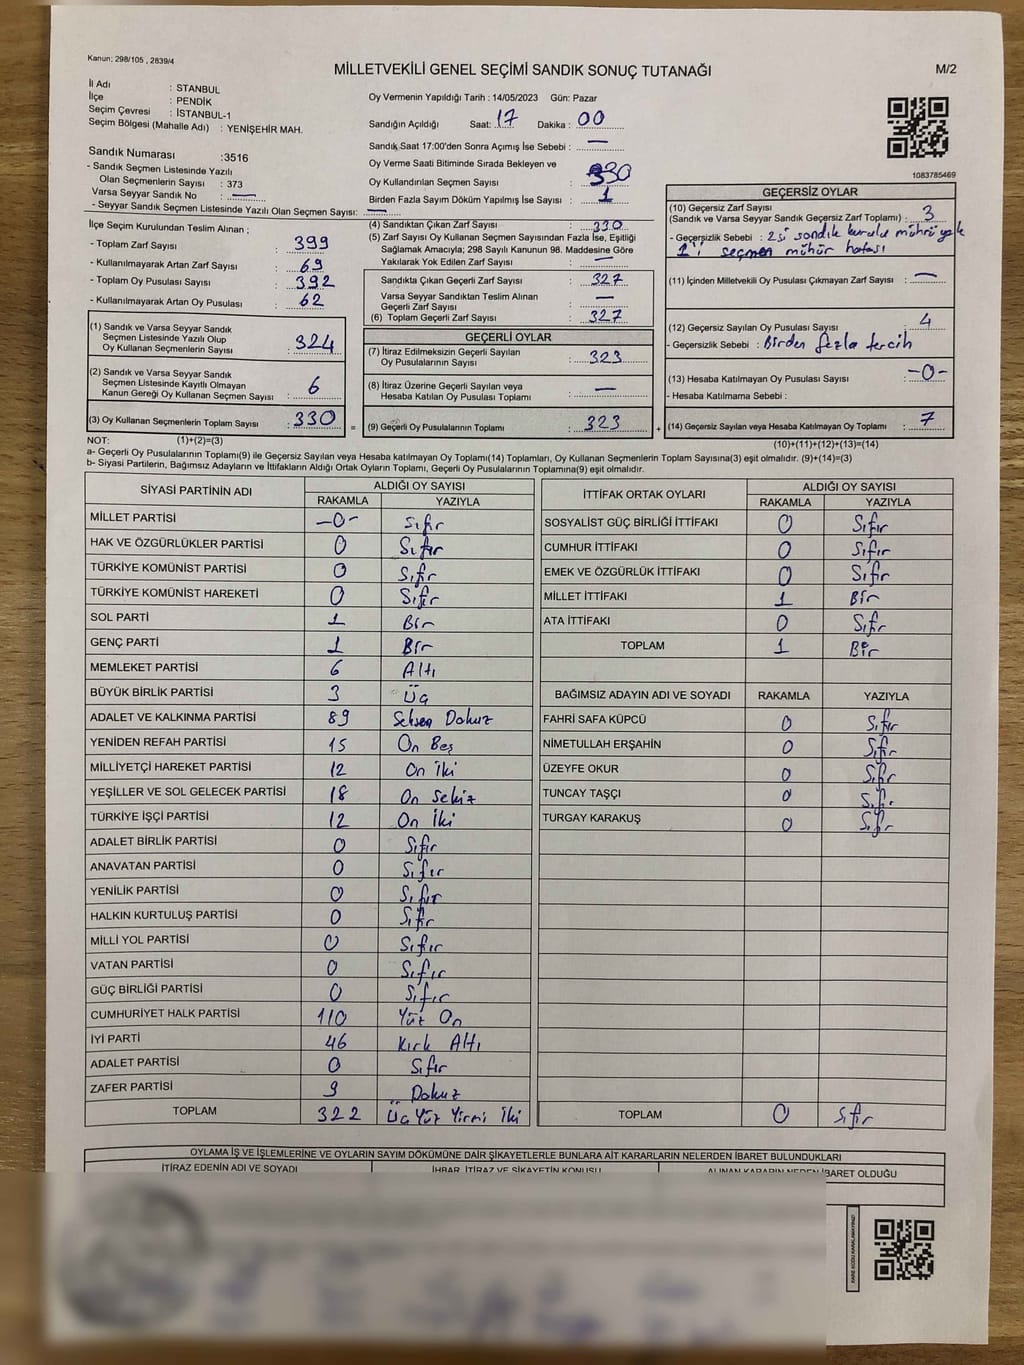 Kanun: 298/105 , 2839/4
MİLLETVEKİLİ GENEL SEÇİMİ SANDIK SONUÇ TUTANAĞI
M/2
İl Adı : STANBUL
İlçe : PENDİK
Seçim Çevresi : İSTANBUL-1
Seçim Bölgesi (Mahalle Adı) : YENİŞEHİR MAH.
Sandık Numarası :3516
- Sandık Seçmen Listesinde Yazılı
Olan Seçmenlerin Sayısı : 373
Varsa Seyyar Sandık No : —
- Seyyar Sandık Seçmen Listesinde Yazılı Olan Seçmen Sayısı: —
Oy Vermenin Yapıldığı Tarih : 14/05/2023 Gün: Pazar
Sandığın Açıldığı Saat: 17 Dakika : 00
Sandık Saat 17:00'den Sonra Açımış İse Sebebi : —
Oy Verme Saati Bitiminde Sırada Bekleyen ve
Oy Kullandırılan Seçmen Sayısı : 330
Birden Fazla Sayım Döküm Yapılmış İse Sayısı : 1
1083785469
İlçe Seçim Kurulundan Teslim Alınan ;
- Toplam Zarf Sayısı : 399
- Kullanılmayarak Artan Zarf Sayısı : 69
- Toplam Oy Pusulası Sayısı : 392
- Kullanılmayarak Artan Oy Pusulası : 62
(1) Sandık ve Varsa Seyyar Sandık
Seçmen Listesinde Yazılı Olup
Oy Kullanan Seçmenlerin Sayısı : 324
(2) Sandık ve Varsa Seyyar Sandık
Seçmen Listesinde Kayıtlı Olmayan
Kanun Gereği Oy Kullanan Seçmen Sayısı : 6
(3) Oy Kullanan Seçmenlerin Toplam Sayısı : 330
(4) Sandıktan Çıkan Zarf Sayısı : 330
(5) Zarf Sayısı Oy Kullanan Seçmen Sayısından Fazla İse, Eşitliği
Sağlamak Amacıyla; 298 Sayılı Kanunun 98. Maddesine Göre
Yakılarak Yok Edilen Zarf Sayısı : —
Sandıkta Çıkan Geçerli Zarf Sayısı : 327
Varsa Seyyar Sandıktan Teslim Alınan
Geçerli Zarf Sayısı : —
(6) Toplam Geçerli Zarf Sayısı : 327
GEÇERLİ OYLAR
(7) İtiraz Edilmeksizin Geçerli Sayılan
Oy Pusulalarının Sayısı : 323
(8) İtiraz Üzerine Geçerli Sayılan veya
Hesaba Katılan Oy Pusulası Toplamı : —
= (9) Geçerli Oy Pusulalarının Toplamı : 323 +
GEÇERSİZ OYLAR
(10) Geçersiz Zarf Sayısı
(Sandık ve Varsa Seyyar Sandık Geçersiz Zarf Toplamı) : 3
- Geçersizlik Sebebi : 2si sandık kurulu mührü yok
1'i seçmen mühür hatası
(11) İçinden Milletvekili Oy Pusulası Çıkmayan Zarf Sayısı : —
(12) Geçersiz Sayılan Oy Pusulası Sayısı : 4
- Geçersizlik Sebebi : Birden fazla tercih
(13) Hesaba Katılmayan Oy Pusulası Sayısı : -0-
- Hesaba Katılmama Sebebi :
(14) Geçersiz Sayılan veya Hesaba Katılmayan Oy Toplamı : 7
NOT: (1)+(2)=(3) (10)+(11)+(12)+(13)=(14)
a- Geçerli Oy Pusulalarının Toplamı(9) ile Geçersiz Sayılan veya Hesaba katılmayan Oy Toplamı(14) Toplamları, Oy Kullanan Seçmenlerin Toplam Sayısına(3) eşit olmalıdır. (9)+(14)=(3)
b- Siyasi Partilerin, Bağımsız Adayların ve İttifakların Aldığı Ortak Oyların Toplamı, Geçerli Oy Pusulalarının Toplamına(9) eşit olmalıdır.
SİYASİ PARTİNİN ADI ALDIĞI OY SAYISI
RAKAMLA YAZIYLA
MİLLET PARTİSİ -0- Sıfır
HAK VE ÖZGÜRLÜKLER PARTİSİ 0 Sıfır
TÜRKİYE KOMÜNİST PARTİSİ 0 Sıfır
TÜRKİYE KOMÜNİST HAREKETİ 0 Sıfır
SOL PARTİ 1 Bir
GENÇ PARTİ 1 Bir
MEMLEKET PARTİSİ 6 Altı
BÜYÜK BİRLİK PARTİSİ 3 Üç
ADALET VE KALKINMA PARTİSİ 89 Seksen Dokuz
YENİDEN REFAH PARTİSİ 15 On Beş
MİLLİYETÇİ HAREKET PARTİSİ 12 On iki
YEŞİLLER VE SOL GELECEK PARTİSİ 18 On Sekiz
TÜRKİYE İŞÇİ PARTİSİ 12 On İki
ADALET BİRLİK PARTİSİ 0 Sıfır
ANAVATAN PARTİSİ 0 Sıfır
YENİLİK PARTİSİ 0 Sıfır
HALKIN KURTULUŞ PARTİSİ 0 Sıfır
MİLLİ YOL PARTİSİ 0 Sıfır
VATAN PARTİSİ 0 Sıfır
GÜÇ BİRLİĞİ PARTİSİ 0 Sıfır
CUMHURİYET HALK PARTİSİ 110 Yüz On
İYİ PARTİ 46 Kırk Altı
ADALET PARTİSİ 0 Sıfır
ZAFER PARTİSİ 9 Dokuz
TOPLAM 322 Üç Yüz Yirmi İki
İTTİFAK ORTAK OYLARI ALDIĞI OY SAYISI
RAKAMLA YAZIYLA
SOSYALİST GÜÇ BİRLİĞİ İTTİFAKI 0 Sıfır
CUMHUR İTTİFAKI 0 Sıfır
EMEK VE ÖZGÜRLÜK İTTİFAKI 0 Sıfır
MİLLET İTTİFAKI 1 Bir
ATA İTTİFAKI 0 Sıfır
TOPLAM 1 Bir
BAĞIMSIZ ADAYIN ADI VE SOYADI RAKAMLA YAZIYLA
FAHRİ SAFA KÜPCÜ 0 Sıfır
NİMETULLAH ERŞAHİN 0 Sıfır
ÜZEYFE OKUR 0 Sıfır
TUNCAY TAŞÇI 0 Sıfır
TURGAY KARAKUŞ 0 Sıfır
TOPLAM 0 Sıfır
OYLAMA İŞ VE İŞLEMLERİNE VE OYLARIN SAYIM DÖKÜMÜNE DAİR ŞİKAYETLERLE BUNLARA AİT KARARLARIN NELERDEN İBARET BULUNDUKLARI
İTİRAZ EDENİN ADI VE SOYADI İHBAR, İTİRAZ VE ŞİKAYETİN KONUSU ALINAN KARARIN NEDEN İBARET OLDUĞU
KARE KODU KARALAMAYINIZ!